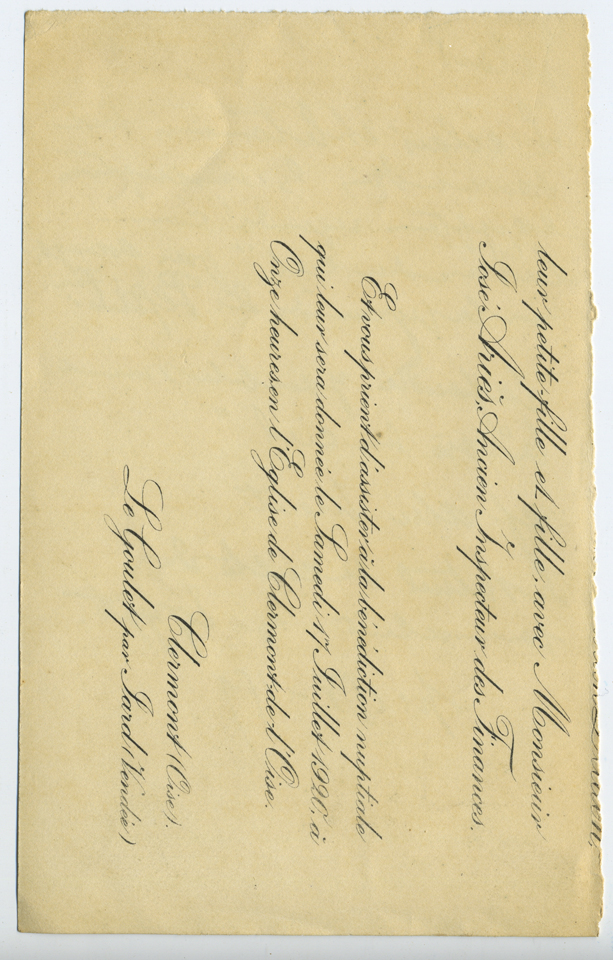 leur petite-fille et fille, avec Monsieur
José Ariès, Ancien Inspecteur des Finances.
Et vous prient d'assister à la bénédiction nuptiale
qui leur sera donnée le Samedi 17 Juillet 1920, à
Onze heures en l'Eglise de Clermont-de-l'Oise.
Clermont (Oise).
Le Goulet par Jard (Vendée)